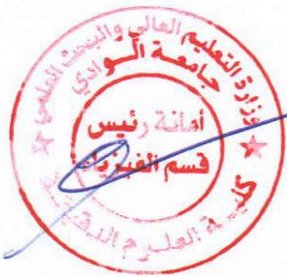 وزارة التعليم العالي والبحث العلمي
جامعة الوادي
أمانة رئيس
قسم الفيزياء
كلية العلوم الدقيقة